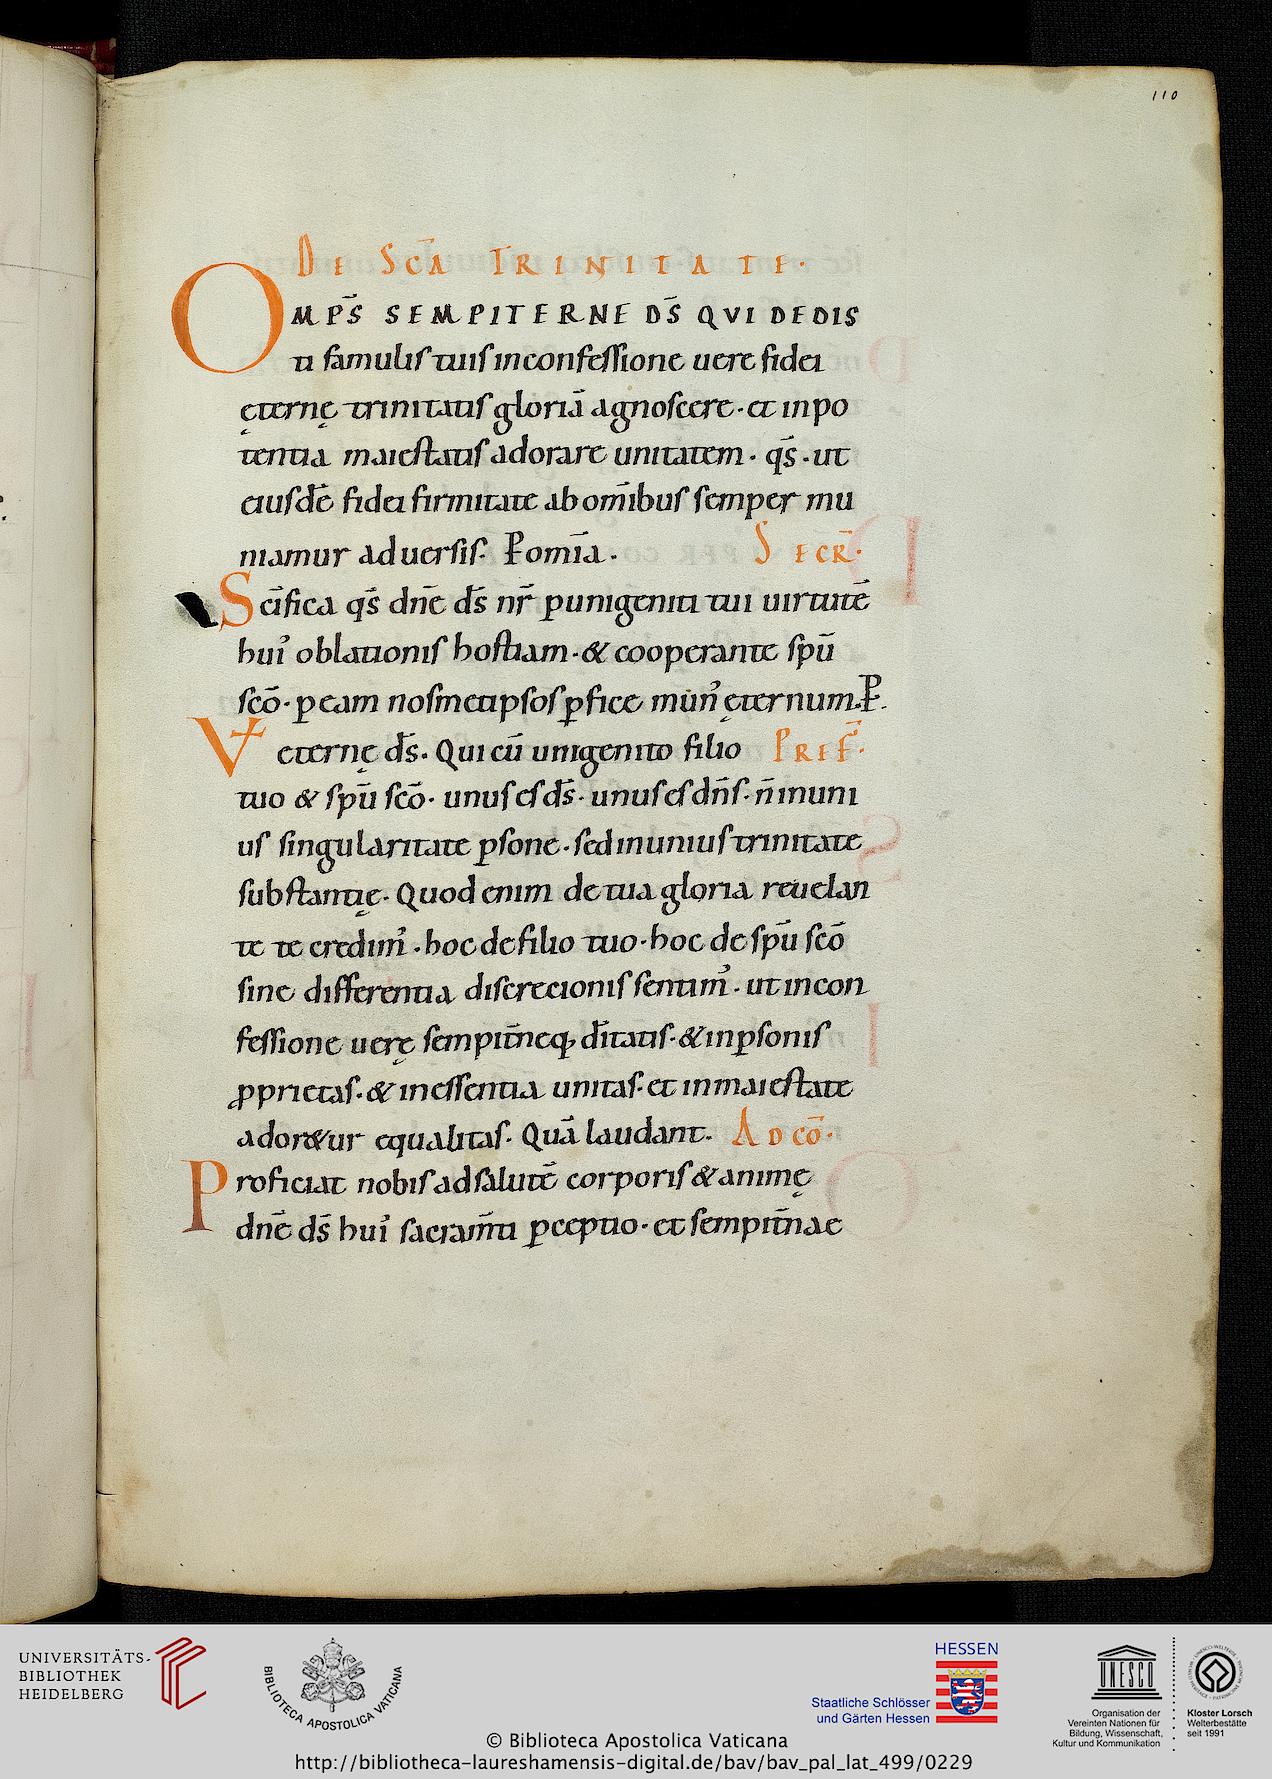 110
DE SCA̅ TRINITATE·
OMP̅S SEMPITERNE D̅S QVI DEDIS
ti famulis tuis in confessione uere fidei
ęternę trinitatis gloriā agnoscere· et in po
tentia maiestatis adorare unitatem· qs̄· ut
eiusdē fidei firmitate ab om̄ibus semper mu
niamur aduersis· P omīa· SECR̅·
Scīfica qs̄ dn̄e ds̄ nr̄ p unigeniti tui uirtutē
hui᾽ oblationis hostiam· & cooperante spū
scō· p eam nosmetipsos ꝑfice mun᾽ ęternum. P.
V+ ęternę ds̄. Qui cū unigenito filio PREF̅·
tuo & spū scō· unus es ds̄· unus es dn̄s· n̄ in uni
us singularitate ꝑsone· sed in unius trinitate
substantię· Quod enim de tua gloria reuelan
te te credim᾽· hoc de filio tuo· hoc de spū scō
sine differentia discrecionis sentim᾽· ut in con
fessione uerę sempit̄neq; dītatis· & in ꝑsonis
ꝓprietas· & in essentia unitas· et in maiestate
ador&ur equalitas· Quā laudant. AD CŌ·
Proficiat nobis ad salutē corporis & animę
dn̄e ds̄ hui᾽ sacram̄ti ꝑceptio· et sempit̄nae
UNIVERSITÄTS-
BIBLIOTHEK
HEIDELBERG
BIBLIOTECA APOSTOLICA VATICANA
HESSEN
Staatliche Schlösser
und Gärten Hessen
UNESCO
Organisation der
Vereinten Nationen für
Bildung, Wissenschaft,
Kultur und Kommunikation
Kloster Lorsch
Welterbestätte
seit 1991
© Biblioteca Apostolica Vaticana
http://bibliotheca-laureshamensis-digital.de/bav/bav_pal_lat_499/0229